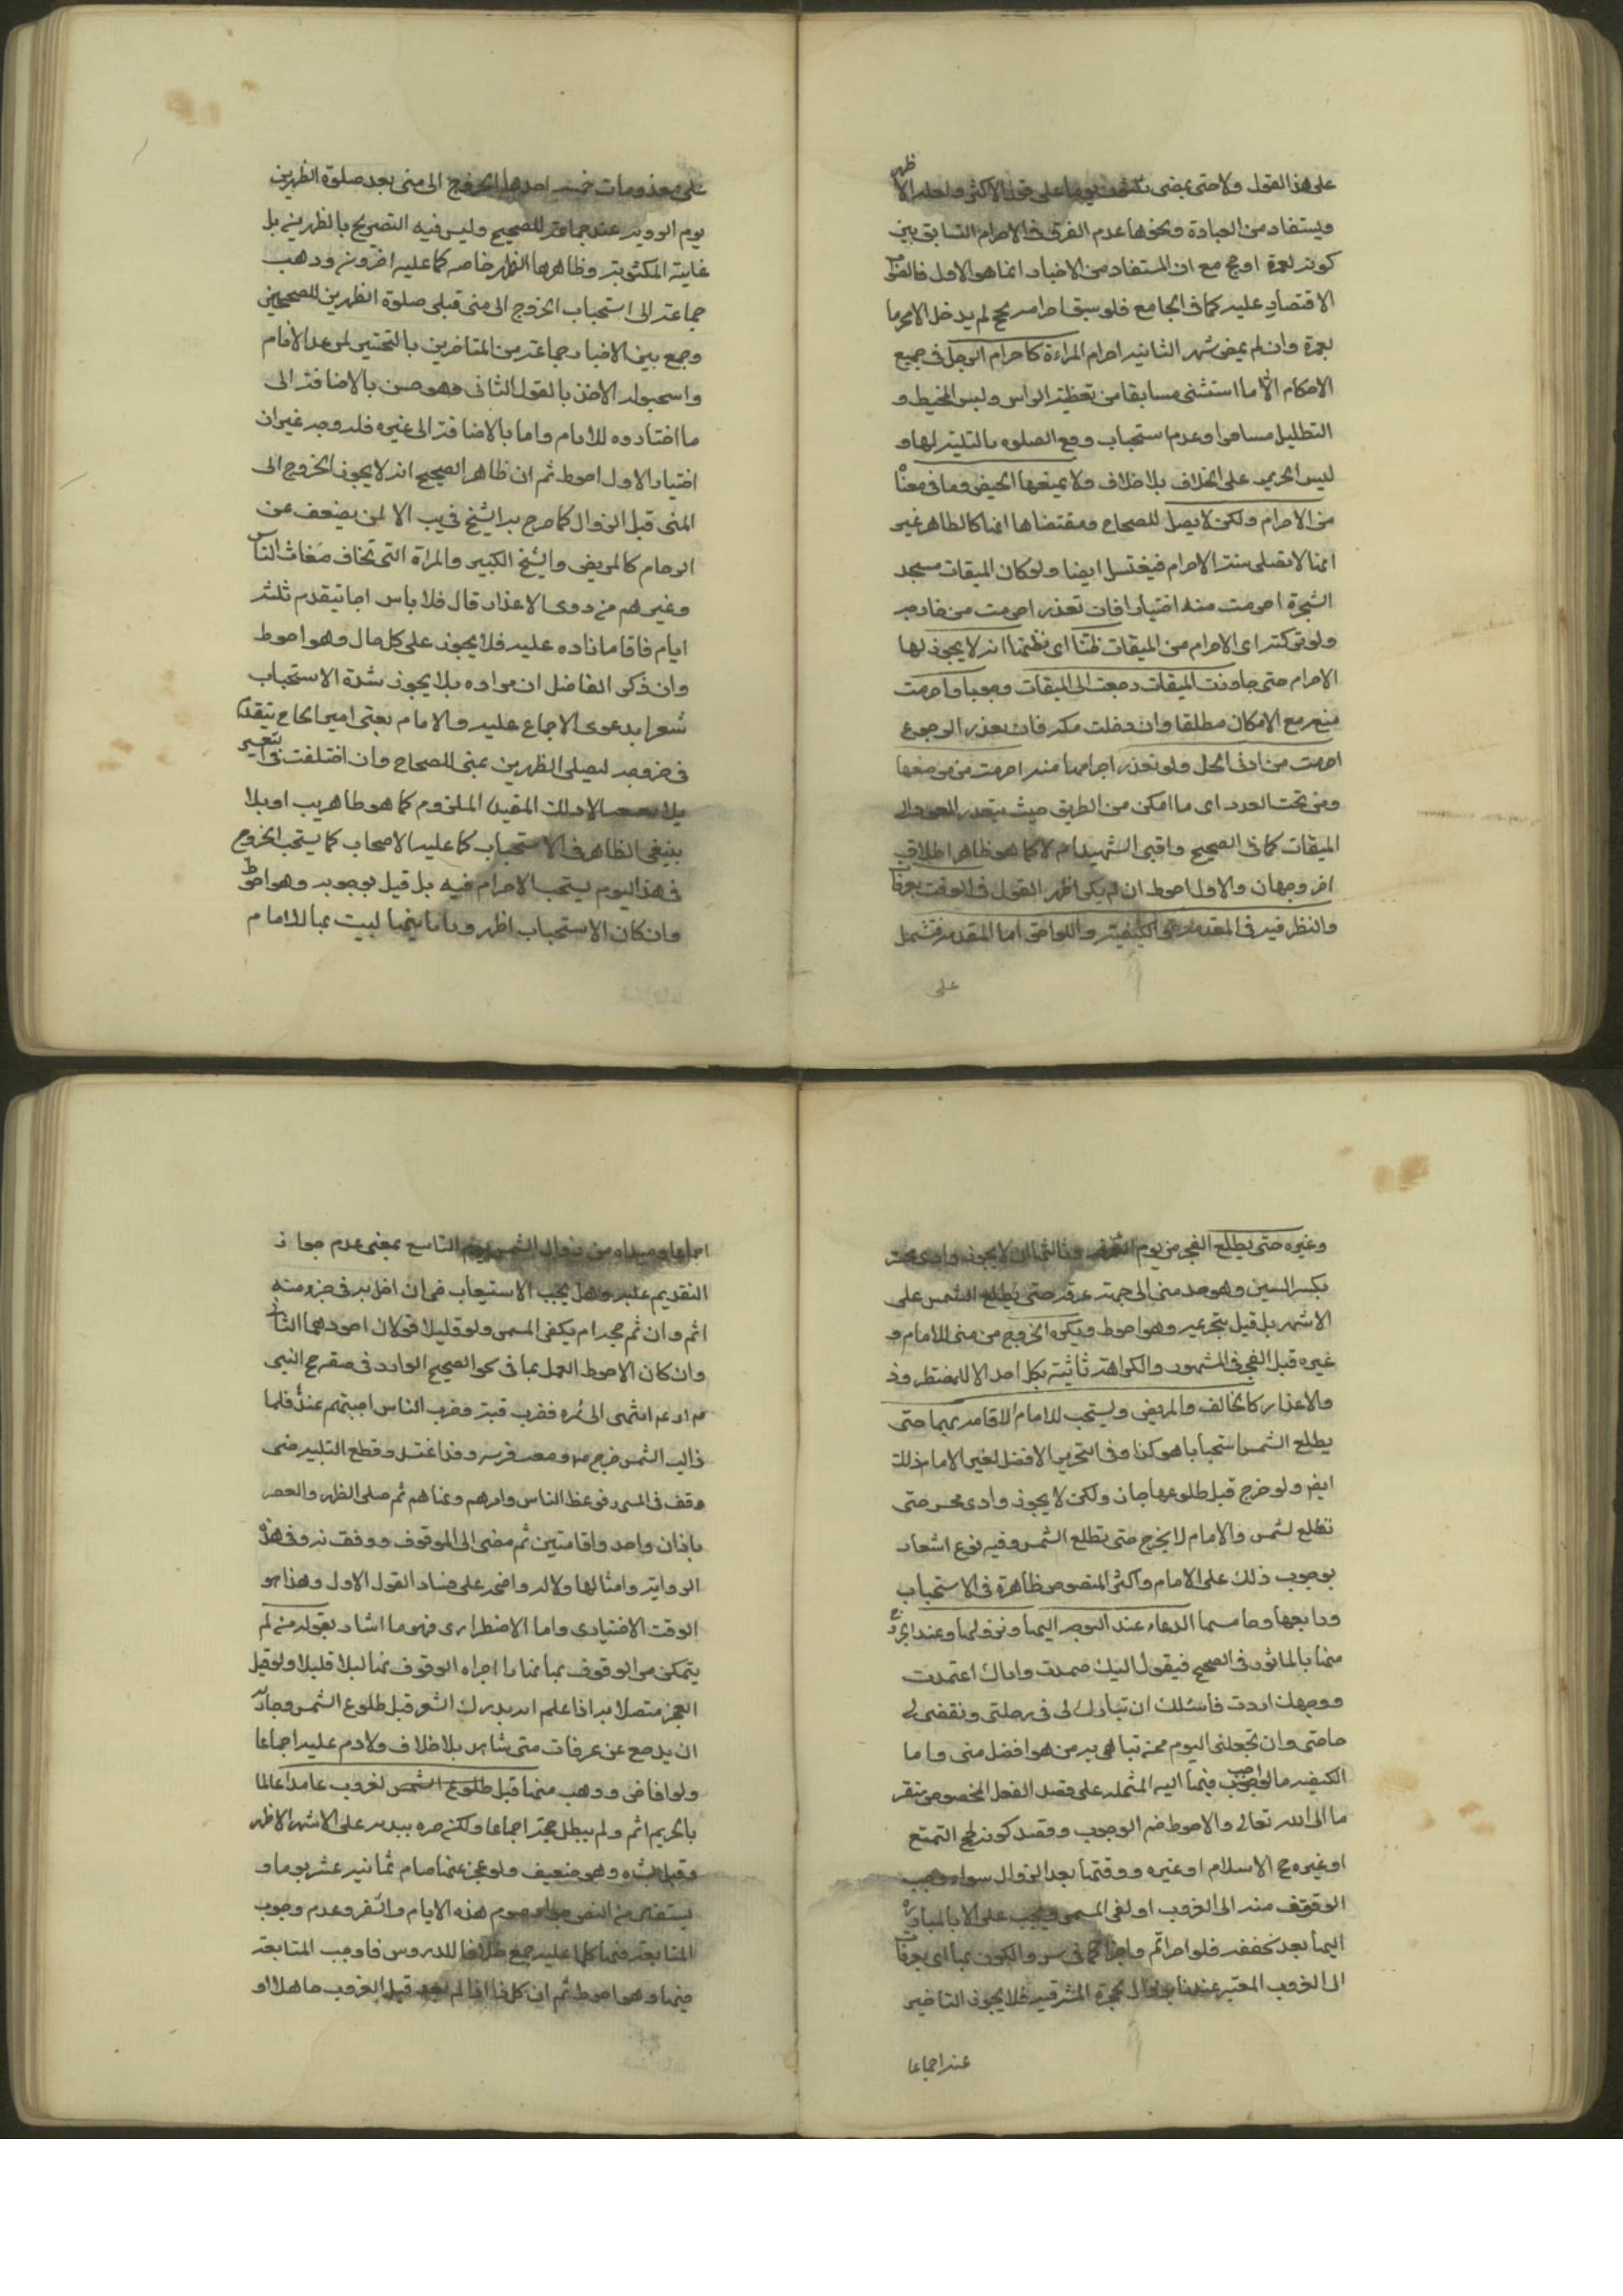 على هذا القول ولا حتى يمضى ثلثون يوما على قول الاكثر ولعله الاظهر
ويستفاد من العبادة ونحوها عدم الفرق فى الاحرام السابق بين
كونه لعمرة او حج مع ان المستفاد من الاخبار انما هو الاول فالقول
الاقتصار عليه كما فى الجامع فلو سبق احرامه بحج لم يدخل الا محرما
بعمرة وان لم يمض شهر الثانيه احرام المراءة كاحرام الرجل فى جميع
الاحكام الا ما استثنى مسابقا من تغطية الراس ولبس المخيط و
التظليل مسامرا وعدم استحباب رفع الصلوه بالتلبية لها و
ليس الحرير على الخلاف بلا خلاف ولا يمنعها الحيض وما فى معناه
من الاحرام ولكن لا يصل للصحاح ومقتضاها انما كالطاهر غير
انما لا تصلى سنة الاحرام فيغتسل ايضا ولو كان الميقات مسجد
الشجرة احرمت منه اختيارا فان تعذر احرمت من خارجه
ولو تركته اى الاحرام من الميقات ظنا اى نظنها انه لا يجوز لها
الاحرام حتى جاوزت الميقات رجعت الى الميقات وجوبا واحرمت
منه مع الامكان مطلقا وان دخلت مكه فان تعذر الرجوع
احرمت من ادنى الحل ولو تعذر احرامها منه احرمت من موضعها
ومن تحت الحدود اى ما امكن من الطريق حيث يتعذر العود الى
الميقات كما فى الصحيح واقبى الشهيد ام لا كما هو ظاهر اطلاق
اخر وجهان والاول احوط ان لم يكن اظهر القول فى الوقوف بعرفات
والنظر فيه فى المقدمة والكيفية واللواحق اما المقدمه فتشمل
على
على مندوبات خمسه احدها الخروج الى منى بعد صلوة الظهرين
يوم التروية عند جماعة للصحيح وليس فيه التصريح بالظهرين بل
غايته المكتوبة وظاهرها الظهر خاصه كما عليه اخرون وذهب
جماعة الى استحباب الخروج الى منى قبل صلوة الظهرين للصحيحين
وجمع بين الاخبار جماعة من المتاخرين بالتخيير لمن عدا الامام
واستحبوا له الاخذ بالقول الثانى وهو حسن بالاضافة الى
ما اختاروه للامام واما بالاضافة الى غيره فله وجه غير ان
اختيار الاول احوط ثم ان ظاهر الصحيح انه لا يجوز الخروج الى
المنى قبل الزوال كما صرح به الشيخ فى يب الا لمن يضعف عن
الزحام كالمريض والشيخ الكبير والمراة التى تخاف ضغاث الناس
وغيرهم من ذوى الاعذار قال فلا باس ان يتقدم ثلثة
ايام فاما ما زاده عليه فلا يجوز على كل حال وهو احوط
وان ذكر الفاضل ان مراده بلا يجوز شدة الاستحباب
شعرا بدعوى الاجماع عليه والامام يعنى امير الحاج يتقدم
فى خروجه ليصلى الظهرين بمنى للصحاح وان اختلفت فى تعبير
بلا المقيد الملزوم كما هو ظاهر يب او بلا
ينبغى الظاهر فى الاستحباب كما عليه الاصحاب كما يستحب الخروج
فى هذا اليوم يستحب الاحرام فيه بل قيل بوجوبه وهو احوط
وان كان الاستحباب اظهر وثانيها لبيت بها للامام
وغيره حتى يطلع الفجر من يوم وثالثها ان لا يجوز وادى محسر
بكسر السين وهو حد منى الى جهة عرفه حتى يطلع الشمس على
الاشهر بل قيل بتحريمه وهو احوط ويكره الخروج من منى للامام و
غيره قبل الفجر فى المشهور والكراهة ثابتة بكل احد الا للمضطر وذ
والاعذار كالخائف والمريض ويستحب للامام الاقامه بها حتى
يطلع الشمس استحبابا هو كذا وفى التحرير الافضل لغير الامام ذلك
ايض ولو خرج قبل طلوعها جاز ولكن لا يجوز وادى محسر حتى
تطلع لشمس والامام لا يخرج حتى تطلع الشمس وفيه نوع اشعار
بوجوب ذلك على الامام واكثر المنصوص ظاهرة فى الاستحباب
ورابعها وخامسها الدعاء عند التوجه اليها ونزولها وعند الخروج
منها بالماثور فى الصحيح فيقول اليك صمدت واياك اعتمدت
ووجهك اردت فاسئلك ان تبارك لى فى رحلتى وتقضى لى
حاجتى وان تجعلنى اليوم ممن تباهى به من هو افضل منى واما
الكيفيه فالواجب فيها اليه المشتمله على قصد الفعل المخصوص متقر
با الى الله تعالى والاحوط ضم الوجوب وقصد كونه لحج التمتع
او غيره حج الاسلام او غيره ووقتها بعد الزوال سواء وجب
الوقوف منه الى الغروب او لفى المسمى ويجب على الا بالمبادرة
اليها بعد تحققه فلو اخر اثم واجزا كما فى س والكون بها اى بعرفات
الى الغروب المعتبر عندنا بزوال حمرة المشرقيه فلا يجوز التاخير
عنه اجماعا
اجماعا ومبداه من زوال الشمس يوم التاسع بمعنى عدم جواز
التقديم عليه وهل يجب الاستيعاب فى ان اخل به فى جزء منه
اثم وان تم حجه ام يكفى المسمى ولو قليلا قولان اجودهما الثانى
وان كان الاحوط العمل بما فى نحو الصحيح الوارد فى صفة حج النبى
ص انه انتهى الى نمره فضرب قبته وضرب الناس اخبيتهم عندها فلما
زالت الشمس خرج ص ومعه فرسه وقد اغتسل وقطع التلبيه حتى
وقف فى المسجد فوعظ الناس وامرهم ونهاهم ثم صلى الظهر والعصر
باذان واحد واقامتين ثم مضى الى الموقوف ووقف به وفى هذه
الرواية وامثالها دلالة واضحه على فساد القول الاول وهذا هو
الوقت الاختيارى واما الاضطرارى فهو ما اشار بقوله من لم
يتمكن من الوقوف بها نهارا اجزاه الوقوف بها ليلا قليلا ولو قبل
الفجر متصلا به اذا علم انه يدرك المشعر قبل طلوع الشمس وجاز له
ان يدفع عن عرفات متى شاء بلا خلاف ولا دم عليه اجماعا
ولو افاض وذهب منها قبل طلوع الشمس لغروب عامدا عالما
بالتحريم اثم ولم يبطل حجه اجماعا ولكن جبره ببدنه على الاشهر الاظهر
وقيل بشاه وهو ضعيف ولو عجز عنها صام ثمانيه عشر يوما و
يستفاد من النص جواز صوم هذه الايام فى السفر وعدم وجوب
المتابعة فيها كما عليه جمع خلافا للدروس فاوجب المتابعة
فيها وهو احوط ثم ان كل ذا اذا لم يعد قبل الغروب جاهلا او